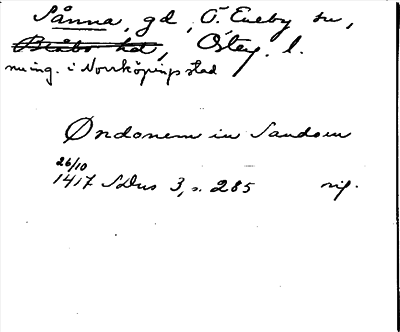 Sånna, gd, Ö. Eneby sn,
Bråbo hd, Östeg. l.
numg. i Norrköpings stad
Øndonem in Sandom
26/10
1417 SDns 3, s. 285 rig.